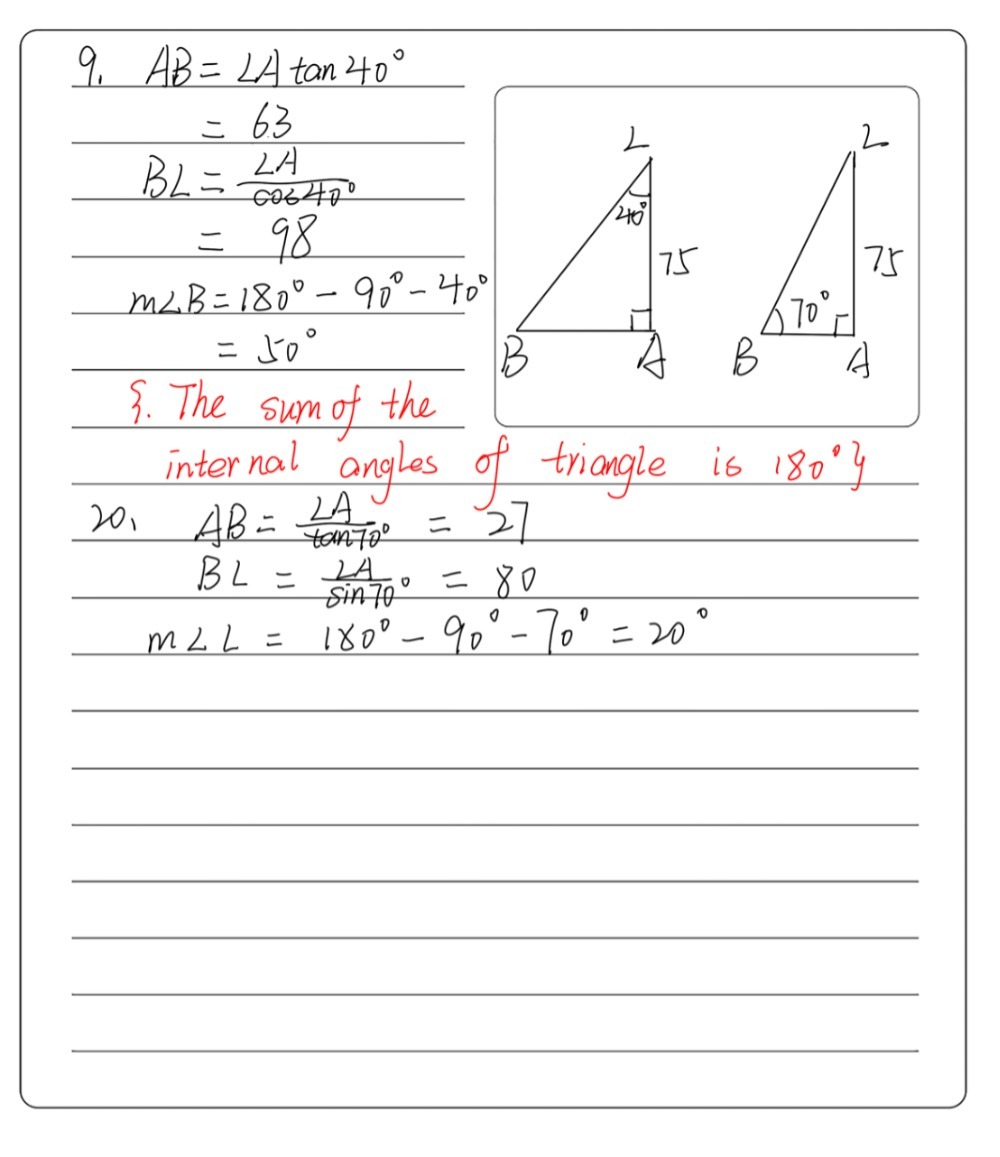 9. AB = LA tan 40°
= 63
BL = LA / cos 40°
= 98
m∠B = 180° - 90° - 40°
= 50°
{. The sum of the
internal angles of triangle is 180°}
20. AB = LA / tan 70° = 27
BL = LA / sin 70° = 80
m∠L = 180° - 90° - 70° = 20°
L
40°
75
B A
L
75
70°
B A